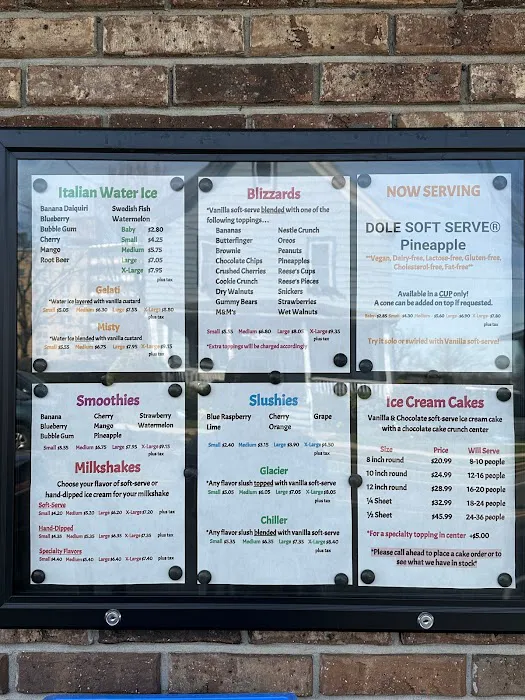 Italian Water Ice
Banana Daiquiri Swedish Fish
Blueberry Watermelon
Bubble Gum Baby $2.80
Cherry Small $4.25
Mango Medium $5.75
Root Beer Large $7.05
X-Large $7.95
plus tax
Gelati
*Water ice layered with vanilla custard
Small $5.05 Medium $6.30 Large $7.55 X-Large $8.80
plus tax
Misty
*Water ice blended with vanilla custard
Small $5.55 Medium $6.75 Large $7.95 X-Large $9.15
plus tax
Blizzards
*Vanilla soft-serve blended with one of the
following toppings...
Bananas Nestle Crunch
Butterfinger Oreos
Brownie Peanuts
Chocolate Chips Pineapples
Crushed Cherries Reese's Cups
Cookie Crunch Reese's Pieces
Dry Walnuts Snickers
Gummy Bears Strawberries
M&M's Wet Walnuts
Small $5.55 Medium $6.80 Large $8.05 X-Large $9.35
plus tax
*Extra toppings will be charged accordingly
NOW SERVING
DOLE SOFT SERVE®
Pineapple
**Vegan, Dairy-free, Lactose-free, Gluten-free,
Cholesterol-free, Fat-free**
Available in a CUP only!
A cone can be added on top if requested.
plus tax
Try it solo or swirled with Vanilla soft-serve!
Smoothies
Banana Cherry Strawberry
Blueberry Mango Watermelon
Bubble Gum Pineapple
Small $5.35 Medium $6.75 Large $7.95 X-Large $9.15
plus tax
Milkshakes
Choose your flavor of soft-serve or
hand-dipped ice cream for your milkshake
Soft-Serve
Small $4.20 Medium $5.20 Large $6.20 X-Large $7.20 plus tax
Hand-Dipped
Small $4.35 Medium $5.35 Large $6.35 X-Large $7.35 plus tax
Specialty Flavors
Small $4.40 Medium $5.40 Large $6.40 X-Large $7.40 plus tax
Slushies
Blue Raspberry Cherry Grape
Lime Orange
Small $2.40 Medium $3.15 Large $3.90 X-Large $6.50
plus tax
Glacier
*Any flavor slush topped with vanilla soft-serve
Small $5.05 Medium $6.05 Large $7.05 X-Large $8.05
plus tax
Chiller
*Any flavor slush blended with vanilla soft-serve
Small $5.35 Medium $6.35 Large $7.35 X-Large $8.40
plus tax
Ice Cream Cakes
Vanilla & Chocolate soft-serve ice cream cake
with a chocolate cake crunch center
Size Price Will Serve
8 inch round $20.99 8-10 people
10 inch round $24.99 12-16 people
12 inch round $28.99 16-20 people
¼ Sheet $32.99 18-24 people
½ Sheet $45.99 24-36 people
*For a specialty topping in center +$5.00
*Please call ahead to place a cake order or to
see what we have in stock*